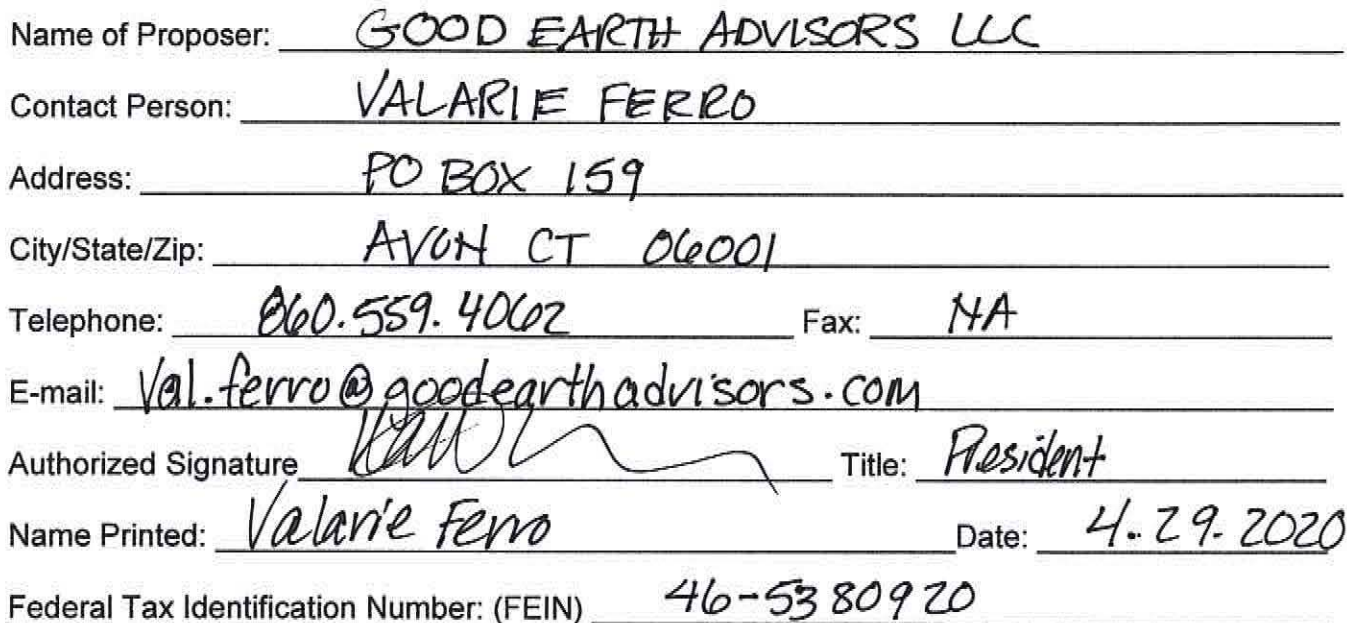 Name of Proposer: GOOD EARTH ADVISORS LLC
Contact Person: VALARIE FERRO
Address: PO BOX 159
City/State/Zip: AVON CT 06001
Telephone: 860.559.4062 Fax: NA
E-mail: Val.ferro@goodearthadvisors.com
Authorized Signature Title: President
Name Printed: Valarie Ferro Date: 4.29.2020
Federal Tax Identification Number: (FEIN) 46-5380920